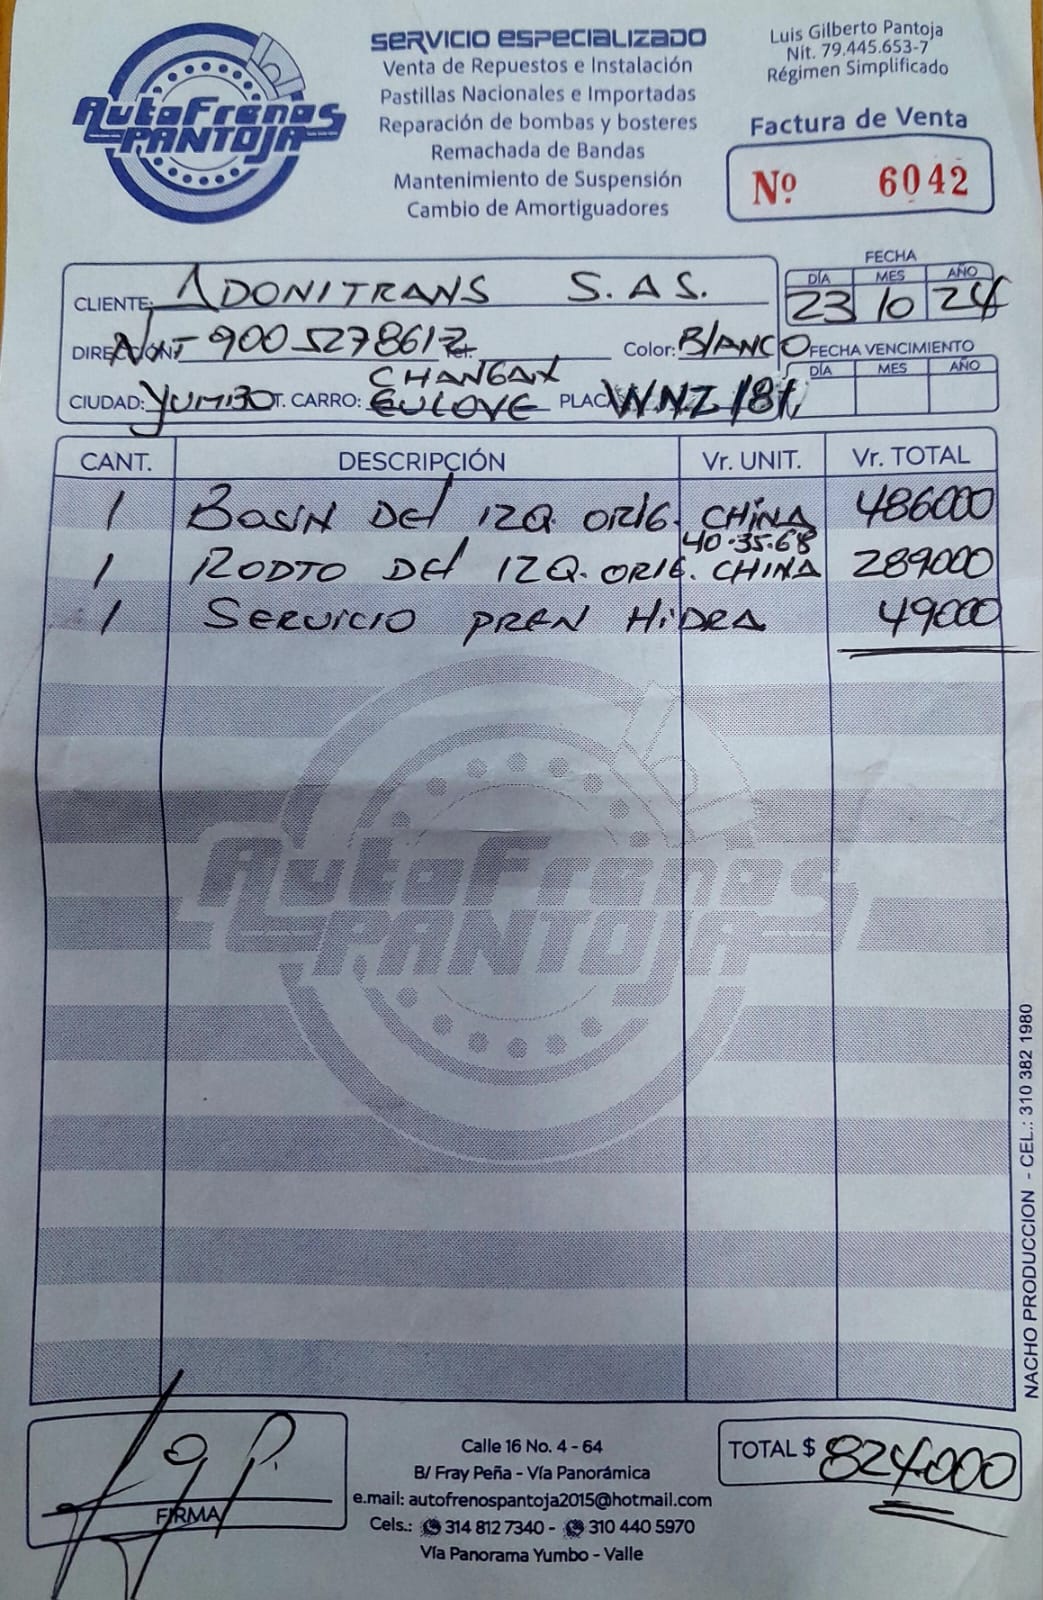 AutoFrenos
PANTOJA
SERVICIO ESPECIALIZADO
Venta de Repuestos e Instalación
Pastillas Nacionales e Importadas
Reparación de bombas y bosteres
Remachada de Bandas
Mantenimiento de Suspensión
Cambio de Amortiguadores
Luis Gilberto Pantoja
Nit. 79.445.653-7
Régimen Simplificado
Factura de Venta
Nº 6042
CLIENTE: ADONITRANS S.A.S.
FECHA
DÍA MES AÑO
23 10 24
NIT 9005278617 Color: BLANCO
FECHA VENCIMIENTO
DÍA MES AÑO
CHANGAN
CIUDAD: YUMBO T. CARRO: EULOVE PLACA WNZ 181
CANT. DESCRIPCIÓN Vr. UNIT. Vr. TOTAL
1 BOSIN DEL IZQ. ORIG. CHINA 486000
40.35.68
1 RODTO DEL IZQ. ORIG. CHINA 289000
1 SERVICIO PREN HIDRA 49000
AutoFrenos
PANTOJA
NACHO PRODUCCION - CEL.: 310 382 1980
FIRMA
Calle 16 No. 4 - 64
B/ Fray Peña - Vía Panorámica
e.mail: autofrenospantoja2015@hotmail.com
Cels.: 314 812 7340 - 310 440 5970
Vía Panorama Yumbo - Valle
TOTAL $ 824000